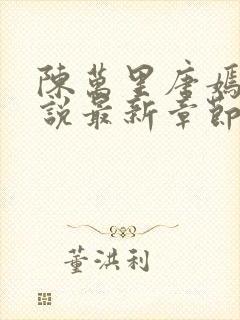 陳萬里唐嫣
說最新章節
董洪利